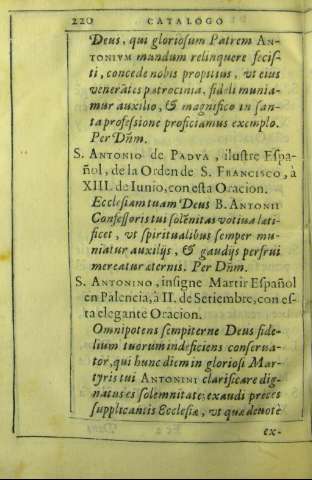 220 CATALOGO
Deus, qui gloriosum Patrem AN-
TONIVM mundum relinquere fecis-
ti, concede nobis propitius, vt eius
venerātes patrocinia, fideli munia-
mur auxilio, & magnifico in san-
ta professione proficiamus exemplo.
Per Dñm.
S. ANTONIO de PADVA, ilustre Espa-
ñol, de la Orden de S. FRANCISCO, à
XIII. de Iunio, con esta Oracion.
Ecclesiam tuam Deus B. ANTONII
Confessoris tui solēnitas votiua læti-
ficet, vt spiritualibus semper mu-
niatur auxilijs, & gaudijs perfrui
mereatur æternis. Per Dñm.
S. ANTONINO, insigne Martir Español
en Palencia, à II. de Setiembre, con es-
ta elegante Oracion.
Omnipotens sempiterne Deus fide-
lium tuorum indeficiens conserua-
tor, qui hunc diem in gloriosi Mar-
tyris tui ANTONINI clarificare dig-
natus es solemnitate; exaudi preces
supplicantis Ecclesiæ, vt quæ deuotè
ex-